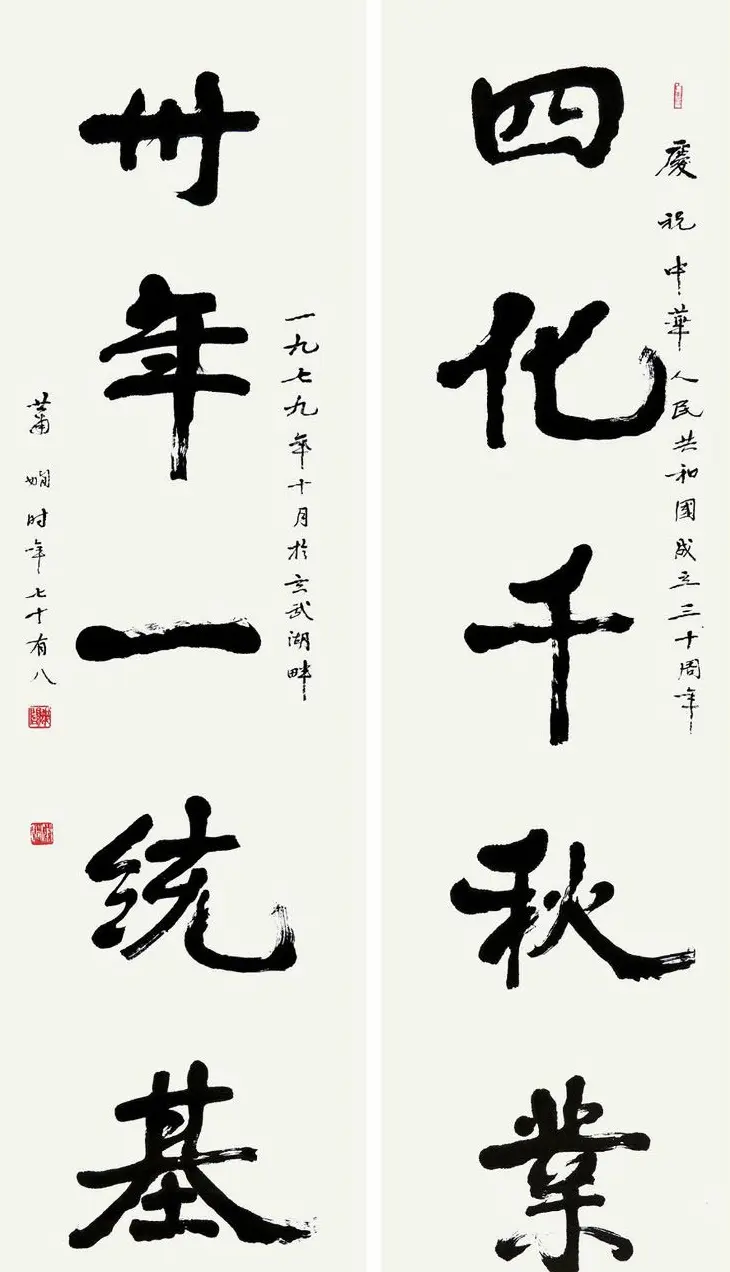 慶祝中華人民共和國成立三十周年
四化千秋業
卅年一统基
一九七九年十月於玄武湖畔
蕭嫻时年七十有八